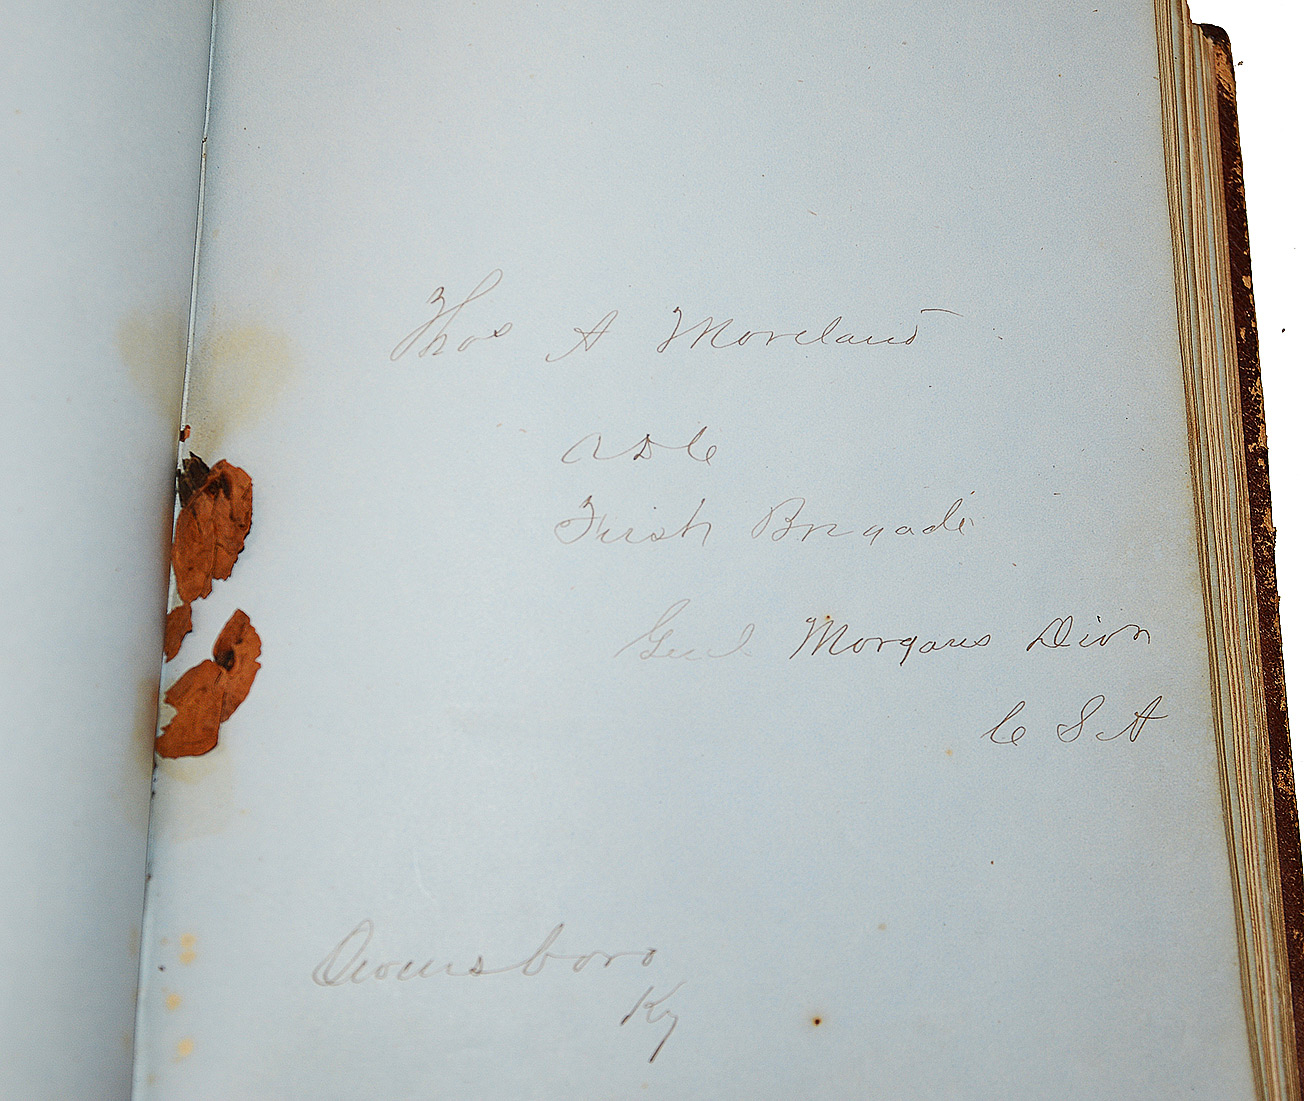 Thos A Moreland
A D C
First Brigade
Genl Morgans Divn
C S A
Owensboro
Ky